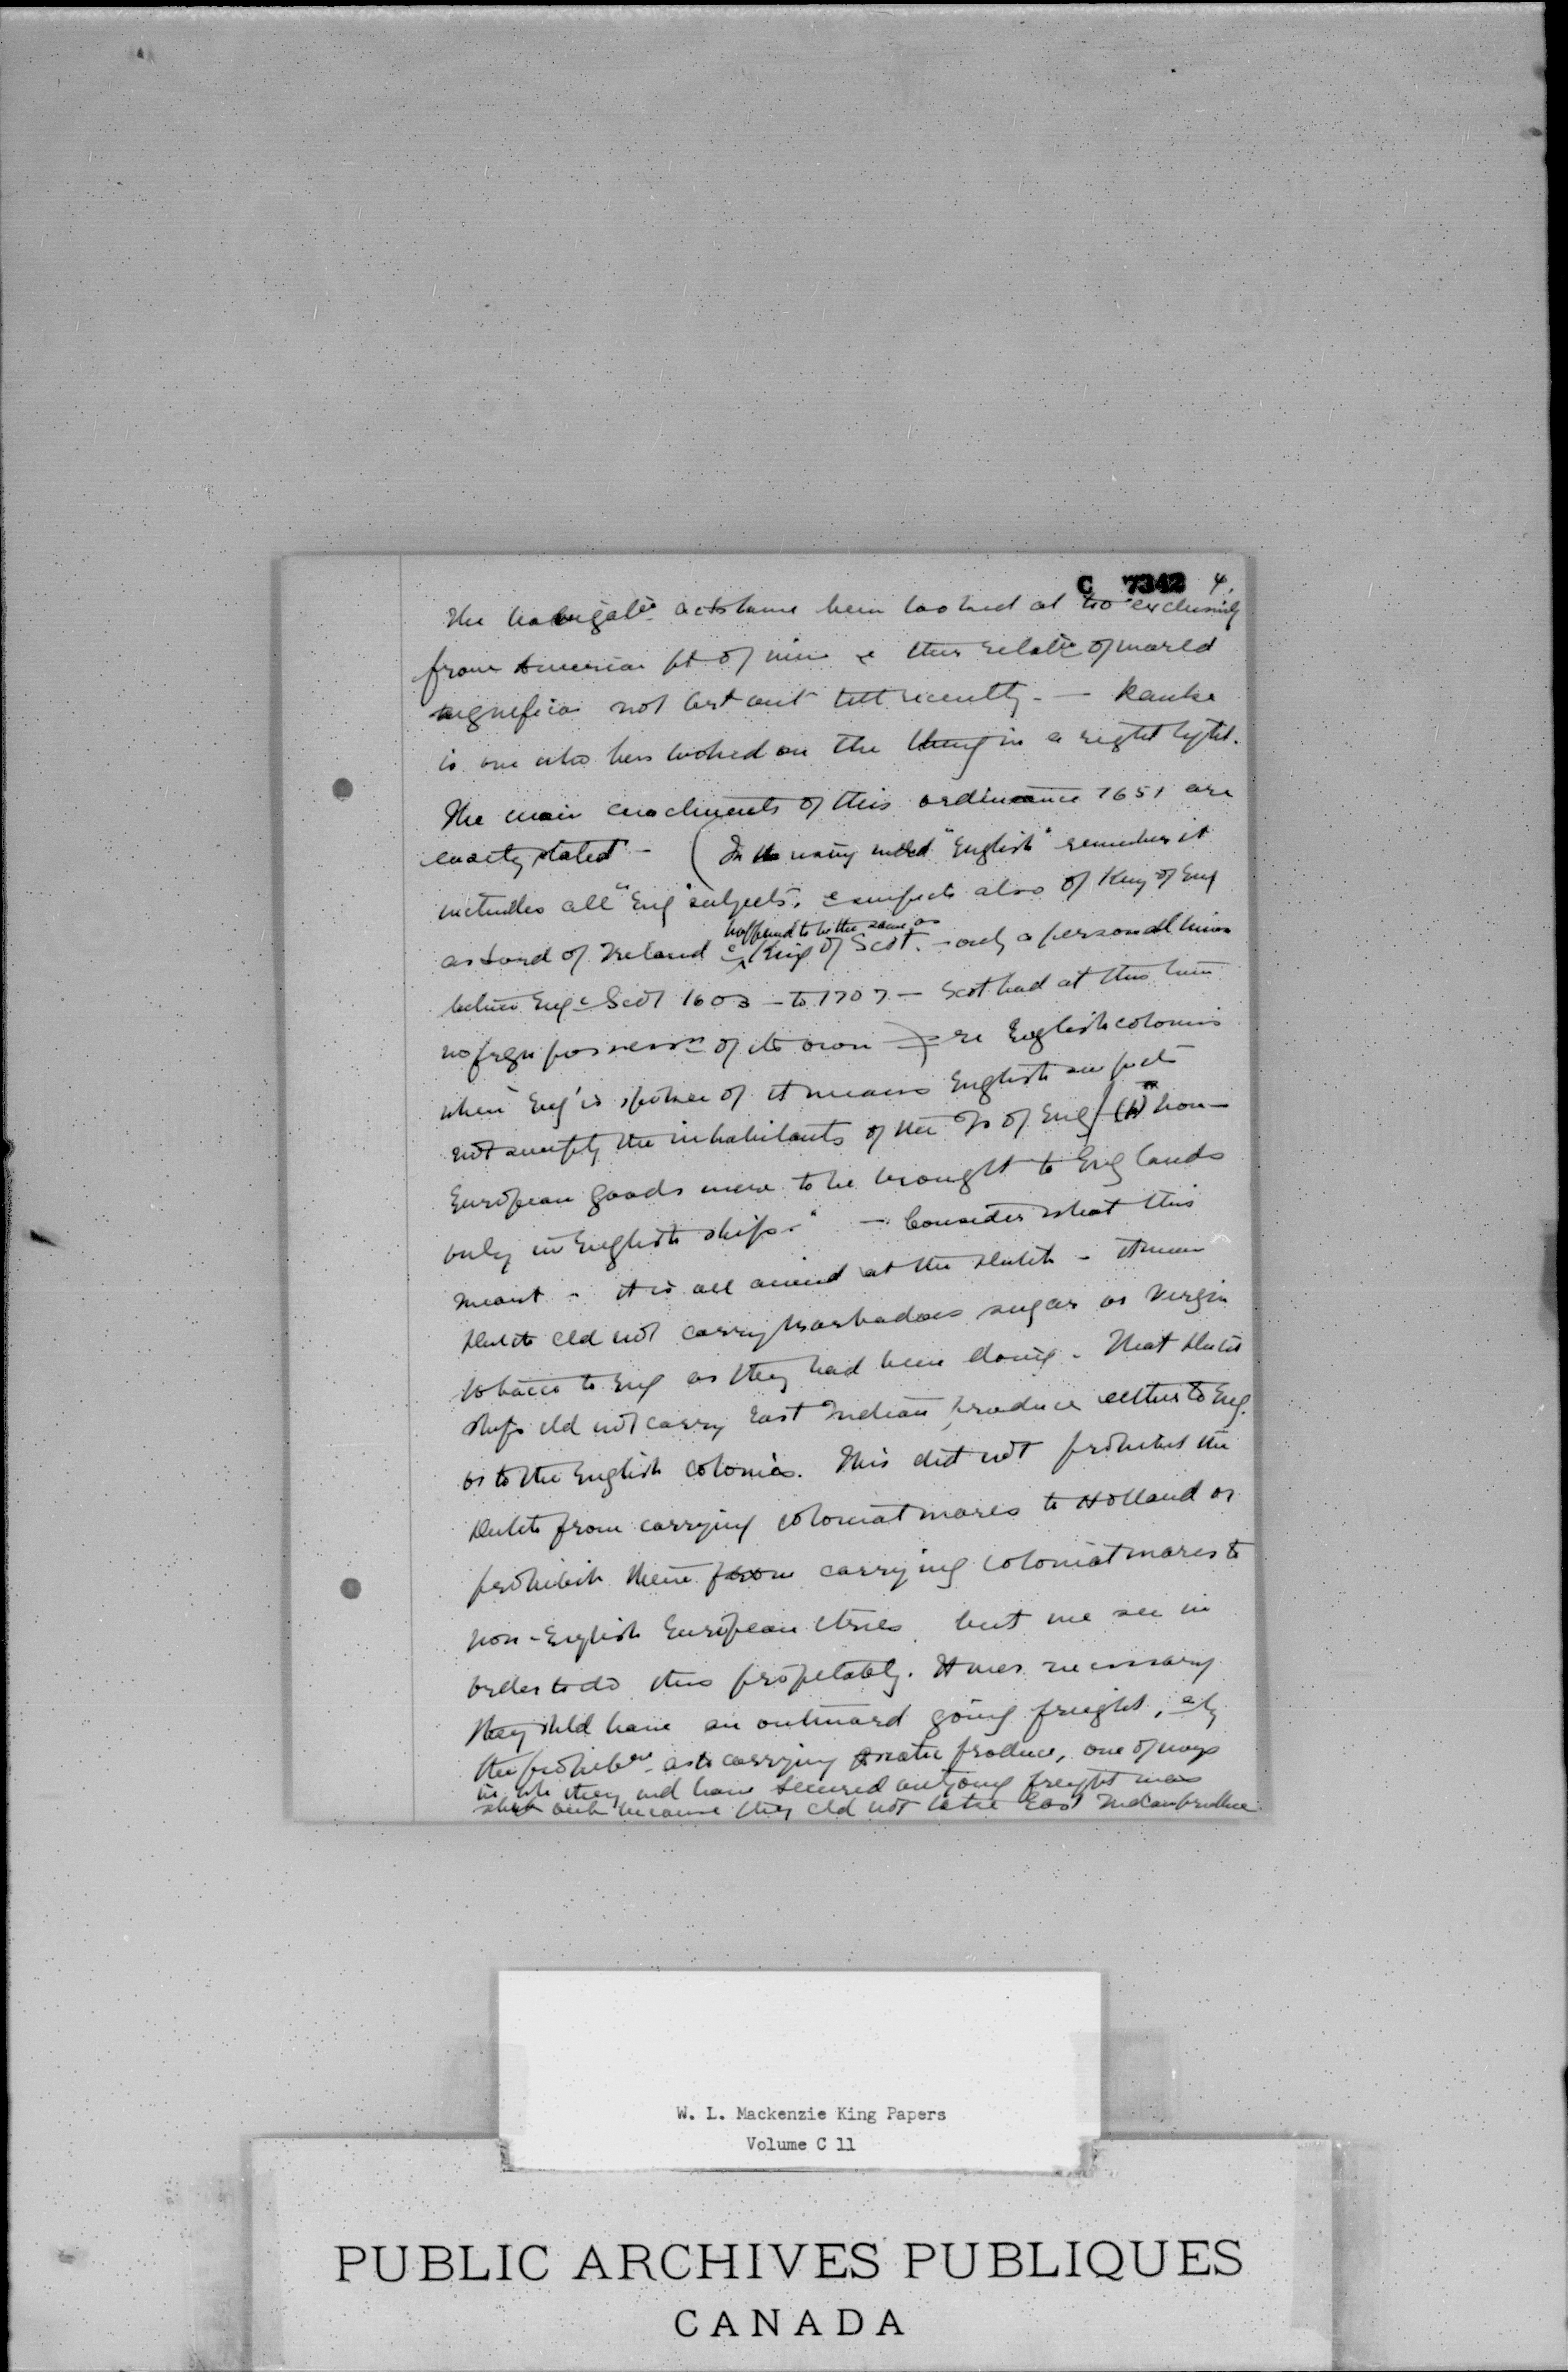 C 7342 4.
The navigatn acts have been looked at too exclusively
from American pt of view & this relatn of world
significa not brt out till recently. — Ranke
is one who has looked on the thing in a right light.
The main enactments of this ordinance 1651 are
exactly stated — (In using word "English" remember it
includes all "Eng" subjects, & subjects also of King of Eng
happened to be the same as
as Lord of Ireland & King of Scot. — only a personal union
between Eng & Scot 1603 — to 1707 — Scot had at this time
no fregn possessn of its own —) re English colonies
when 'Eng' is spoken of it means English subjects
not simply the inhabitants of the of Eng / (1) "non-
European goods were to be brought to Eng lands
only in English ships." — Consider what this
meant - it is all aimed at the Dutch - it mean
Dutch cld not carry Barbadoes sugar or Virgin
tobacco to Eng as they had been doing. That Dutch
ships cld not carry East Indian produce either to Eng.
or to the English colonies. This did not prohibit the
Dutch from carrying colonial wares to Holland or
prohibit them from carrying colonial wares to
non-English European ctries but we see in
order to do this profitably. It was necessary
they shld have an outward going freight, & by
the prohibn as to carrying Asiatic produce, one of ways
in wh they wd have secured outgoing freight was
shut out because they cld not take East Indian produce
W. L. Mackenzie King Papers
Volume C 11
PUBLIC ARCHIVES PUBLIQUES
CANADA